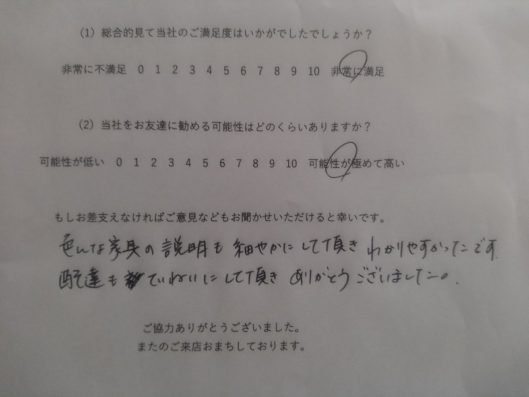 (1) 総合的見て当社のご満足度はいかがでしたでしょうか?
非常に不満足 0 1 2 3 4 5 6 7 8 9 10 非常に満足
(2) 当社をお友達に勧める可能性はどのくらいありますか?
可能性が低い 0 1 2 3 4 5 6 7 8 9 10 可能性が極めて高い
もしお差支えなければご意見などもお聞かせいただけると幸いです。
色んな家具の説明も細やかにして頂きわかりやすかったです
配達もていねいにして頂きありがとうございました。
ご協力ありがとうございました。
またのご来店おまちしております。